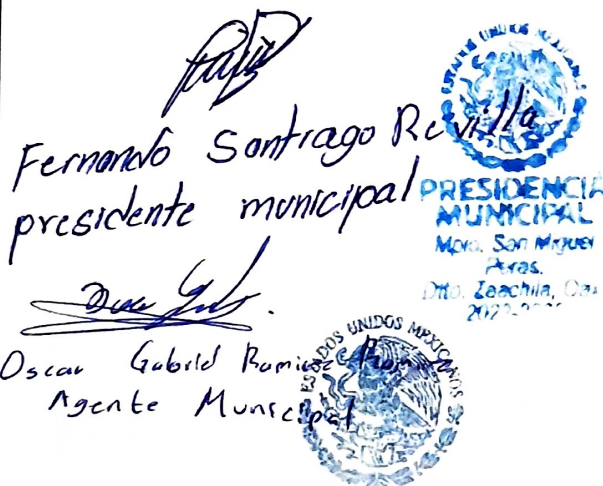 Fernando Santiago Revilla
presidente municipal
ESTADOS UNIDOS MEXICANOS
PRESIDENCIA
MUNICIPAL
Mpio. San Miguel
Peras.
Dtto. Zaachila, Oax.
2022-
Oscar Gabriel Ramirez
Agente Municipal
ESTADOS UNIDOS MEXICANOS